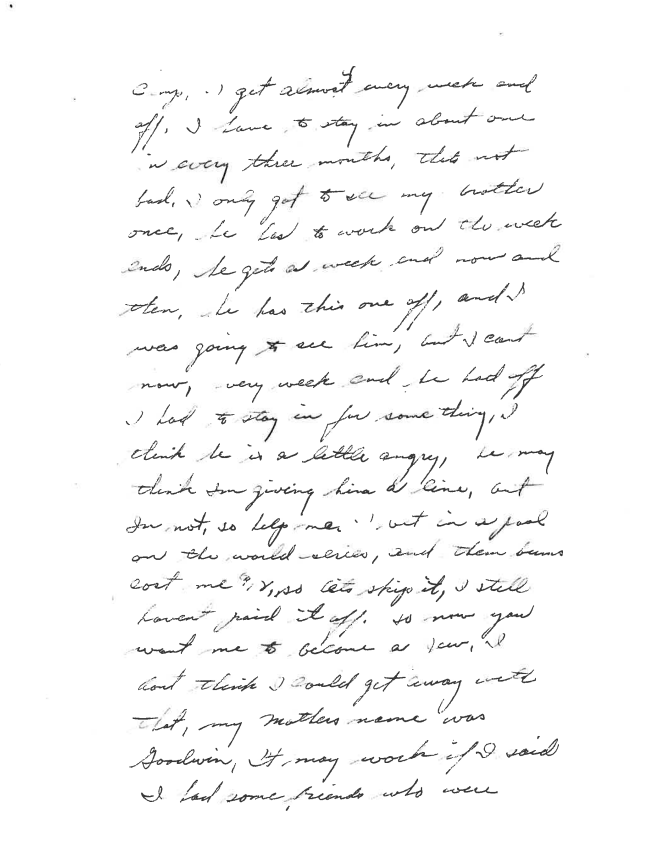 Camp, I get almost every week end
off, I have to stay in about one
in every three months, thats not
bad, I only got to see my brother
once, he has to work on the week
ends, he gets a week end now and
then, he has this one off, and I
was going to see him, but I cant
now, every week end he had off
I had to stay in for some thing, I
think he is a little angry, he may
think Im giving him a line, but
Im not, so help me. I bet in a pool
on the world series, and them bums
cost me so lets skip it, I still
havent paid it off. so now you
want me to become a Jew, I
dont think I could get away with
that, my mothers name was
Goodwin, It may work if I said
I had some friends who were